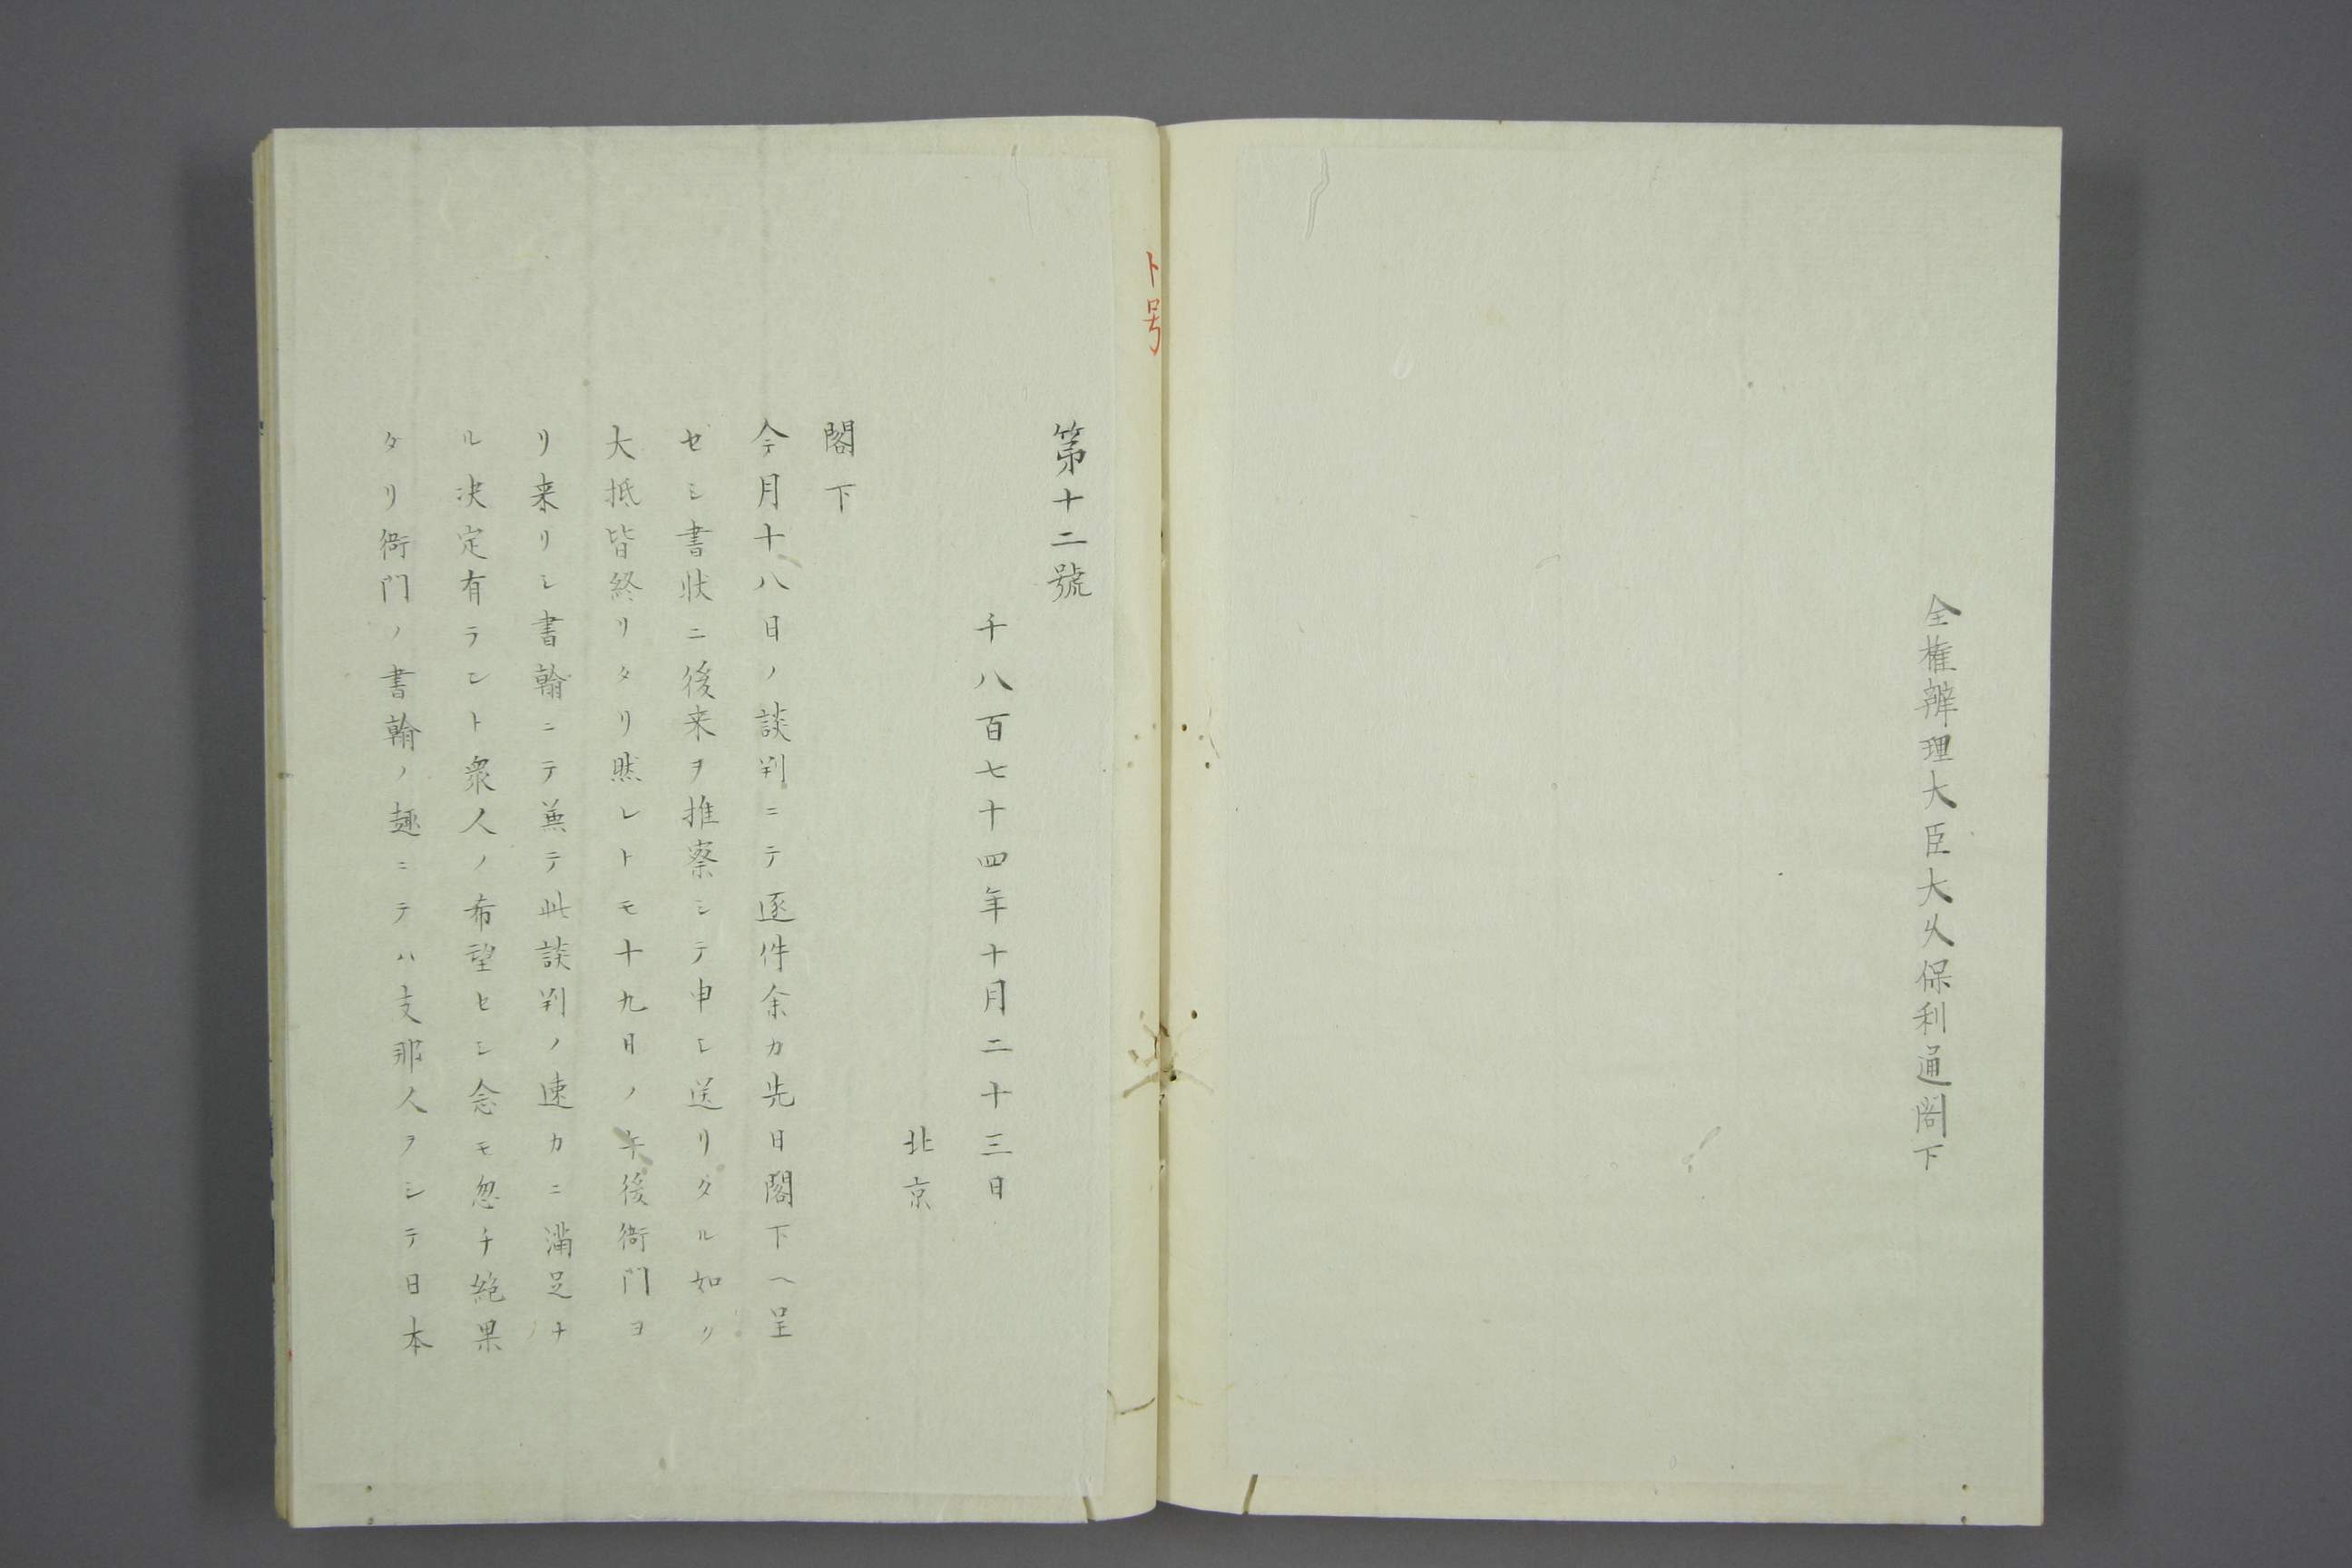 全権辨理大臣大久保利通閣下
ト号
第十二號
千八百七十四年十月二十三日
北京
閣下
今月十八日ノ談判ニテ逐件余カ先日閣下ヘ呈
セシ書状ニ後来ヲ推察シテ申シ送リタル如ク
大抵皆終リタリ然レトモ十九日ノ午後衙門ヨ
リ来リシ書翰ニテ兼テ此談判ノ速カニ満足ナ
ル决定有ラント衆人ノ希望セシ念モ忽チ絶果
タリ衙門ノ書翰ノ趣ニテハ支那人ヲシテ日本